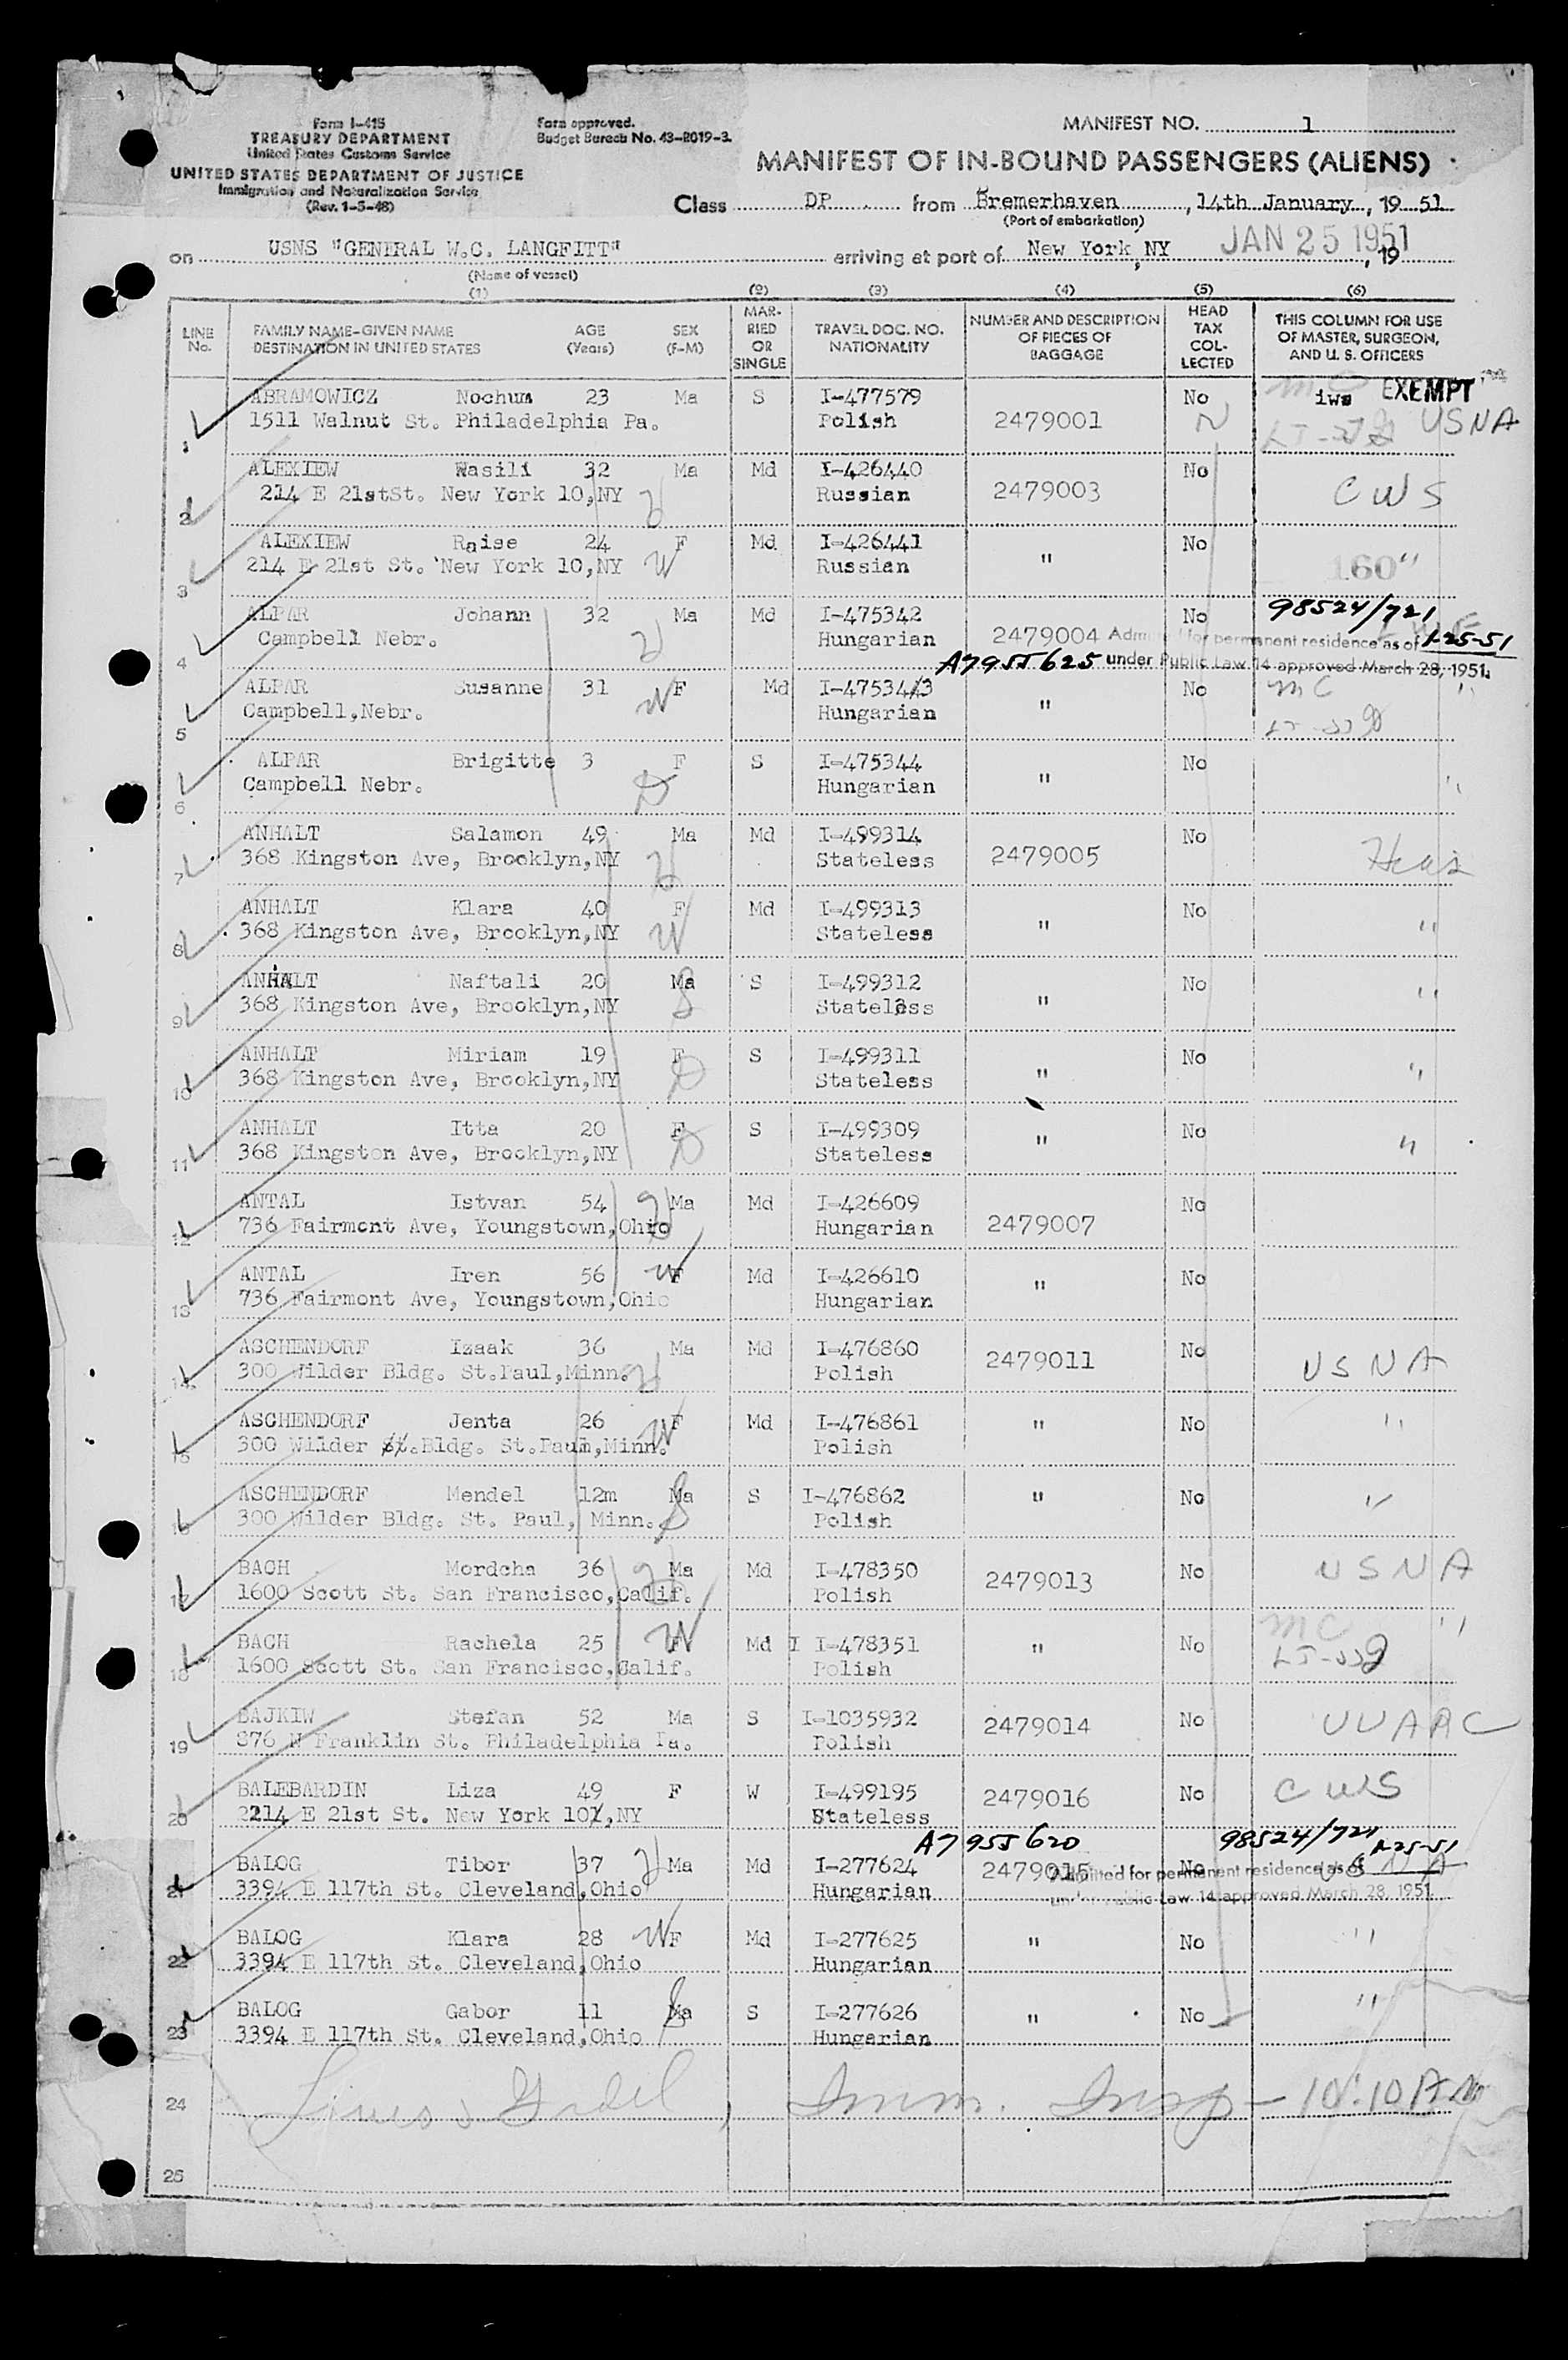 Form I-415
TREASURY DEPARTMENT
United States Customs Service
UNITED STATES DEPARTMENT OF JUSTICE
Immigration and Naturalization Service
(Rev. 1-5-48)
Form approved.
Budget Bureau No. 43-R019-3.
MANIFEST NO. 1
MANIFEST OF IN-BOUND PASSENGERS (ALIENS)
Class DP from Bremerhaven, 14th January, 19 51
(Port of embarkation)
on USNS "GENERAL W.C. LANGFITT" arriving at port of New York, NY JAN 25 1951, 19
(Name of vessel)
(1) (2) (3) (4) (5) (6)
LINE No. FAMILY NAME-GIVEN NAME DESTINATION IN UNITED STATES AGE (Years) SEX (F-M) MARRIED OR SINGLE TRAVEL DOC. NO. NATIONALITY NUMBER AND DESCRIPTION OF PIECES OF BAGGAGE HEAD TAX COLLECTED THIS COLUMN FOR USE OF MASTER, SURGEON, AND U. S. OFFICERS
ABRAMOWICZ Nochum 23 Ma S I-477579 No MC iws EXEMPT
1 1511 Walnut St. Philadelphia Pa. Polish 2479001 N USNA
ALEXIEW Wasili 32 Ma Md I-426440 No
2 214 E 21stSt. New York 10,NY Russian 2479003 CWS
ALEXIEW Raise 24 F Md I-426441 No
3 214 E 21st St. New York 10,NY W Russian " 160 "
ALPAR Johann 32 Ma Md I-475342 No 98524/721
4 Campbell Nebr. Hungarian 2479004 Admitted for permanent residence as of 1-25-51
A7955625 under Public Law 14 approved March 28, 1951.
ALPAR Susanne 31 W F Md I-475343 No MC "
5 Campbell,Nebr. Hungarian "
ALPAR Brigitte 3 F S I-475344 No
6 Campbell Nebr. D Hungarian " "
ANHALT Salamon 49 Ma Md I-499314 No
7 368 Kingston Ave, Brooklyn,NY Stateless 2479005 Hias
ANHALT Klara 40 F Md I-499313 No
8 368 Kingston Ave, Brooklyn,NY W Stateless " "
ANHALT Naftali 20 Ma S I-499312 No
9 368 Kingston Ave, Brooklyn,NY S Stateless " "
ANHALT Miriam 19 F S I-499311 No
10 368 Kingston Ave, Brooklyn,NY D Stateless " "
ANHALT Itta 20 F S I-499309 No
11 368 Kingston Ave, Brooklyn,NY D Stateless " "
ANTAL Istvan 54 Ma Md I-426609 No
12 736 Fairmont Ave, Youngstown,Ohio Hungarian 2479007
ANTAL Iren 56 W F Md I-426610 No
13 736 Fairmont Ave, Youngstown,Ohio Hungarian "
ASCHENDORF Izaak 36 Ma Md I-476860 No
14 300 Wilder Bldg. St.Paul,Minn. Polish 2479011 USNA
ASCHENDORF Jenta 26 W F Md I-476861 " No "
15 300 Wilder St.Bldg. St.Paul,Minn. Polish
ASCHENDORF Mendel 12m Ma S I-476862 " No "
16 300 Wilder Bldg. St. Paul, Minn. S Polish
BACH Mordcha 36 Ma Md I-478350 No USNA
17 1600 Scott St. San Francisco,Calif. Polish 2479013
BACH Rachela 25 W F Md I I-478351 " No MC "
18 1600 Scott St. San Francisco,Calif. Polish
BAJKIW Stefan 52 Ma S I-1035932 No UUARC
19 876 N Franklin St. Philadelphia Pa. Polish 2479014
BALEBARDIN Liza 49 F W I-499195 No CWS
20 2214 E 21st St. New York 10,NY Stateless 2479016
A7955620 98524/721
BALOG Tibor 37 Ma Md I-277624 2479015 No 1-25-51
21 3394 E 117th St. Cleveland,Ohio Hungarian Admitted for permanent residence as of
under Public Law 14 approved March 28, 1951.
BALOG Klara 28 W F Md I-277625 " No "
22 3394 E 117th St. Cleveland,Ohio Hungarian
BALOG Gabor 11 S Ma S I-277626 " No "
23 3394 E 117th St. Cleveland,Ohio Hungarian
24 Imm. Insp - 10:10 AM
25